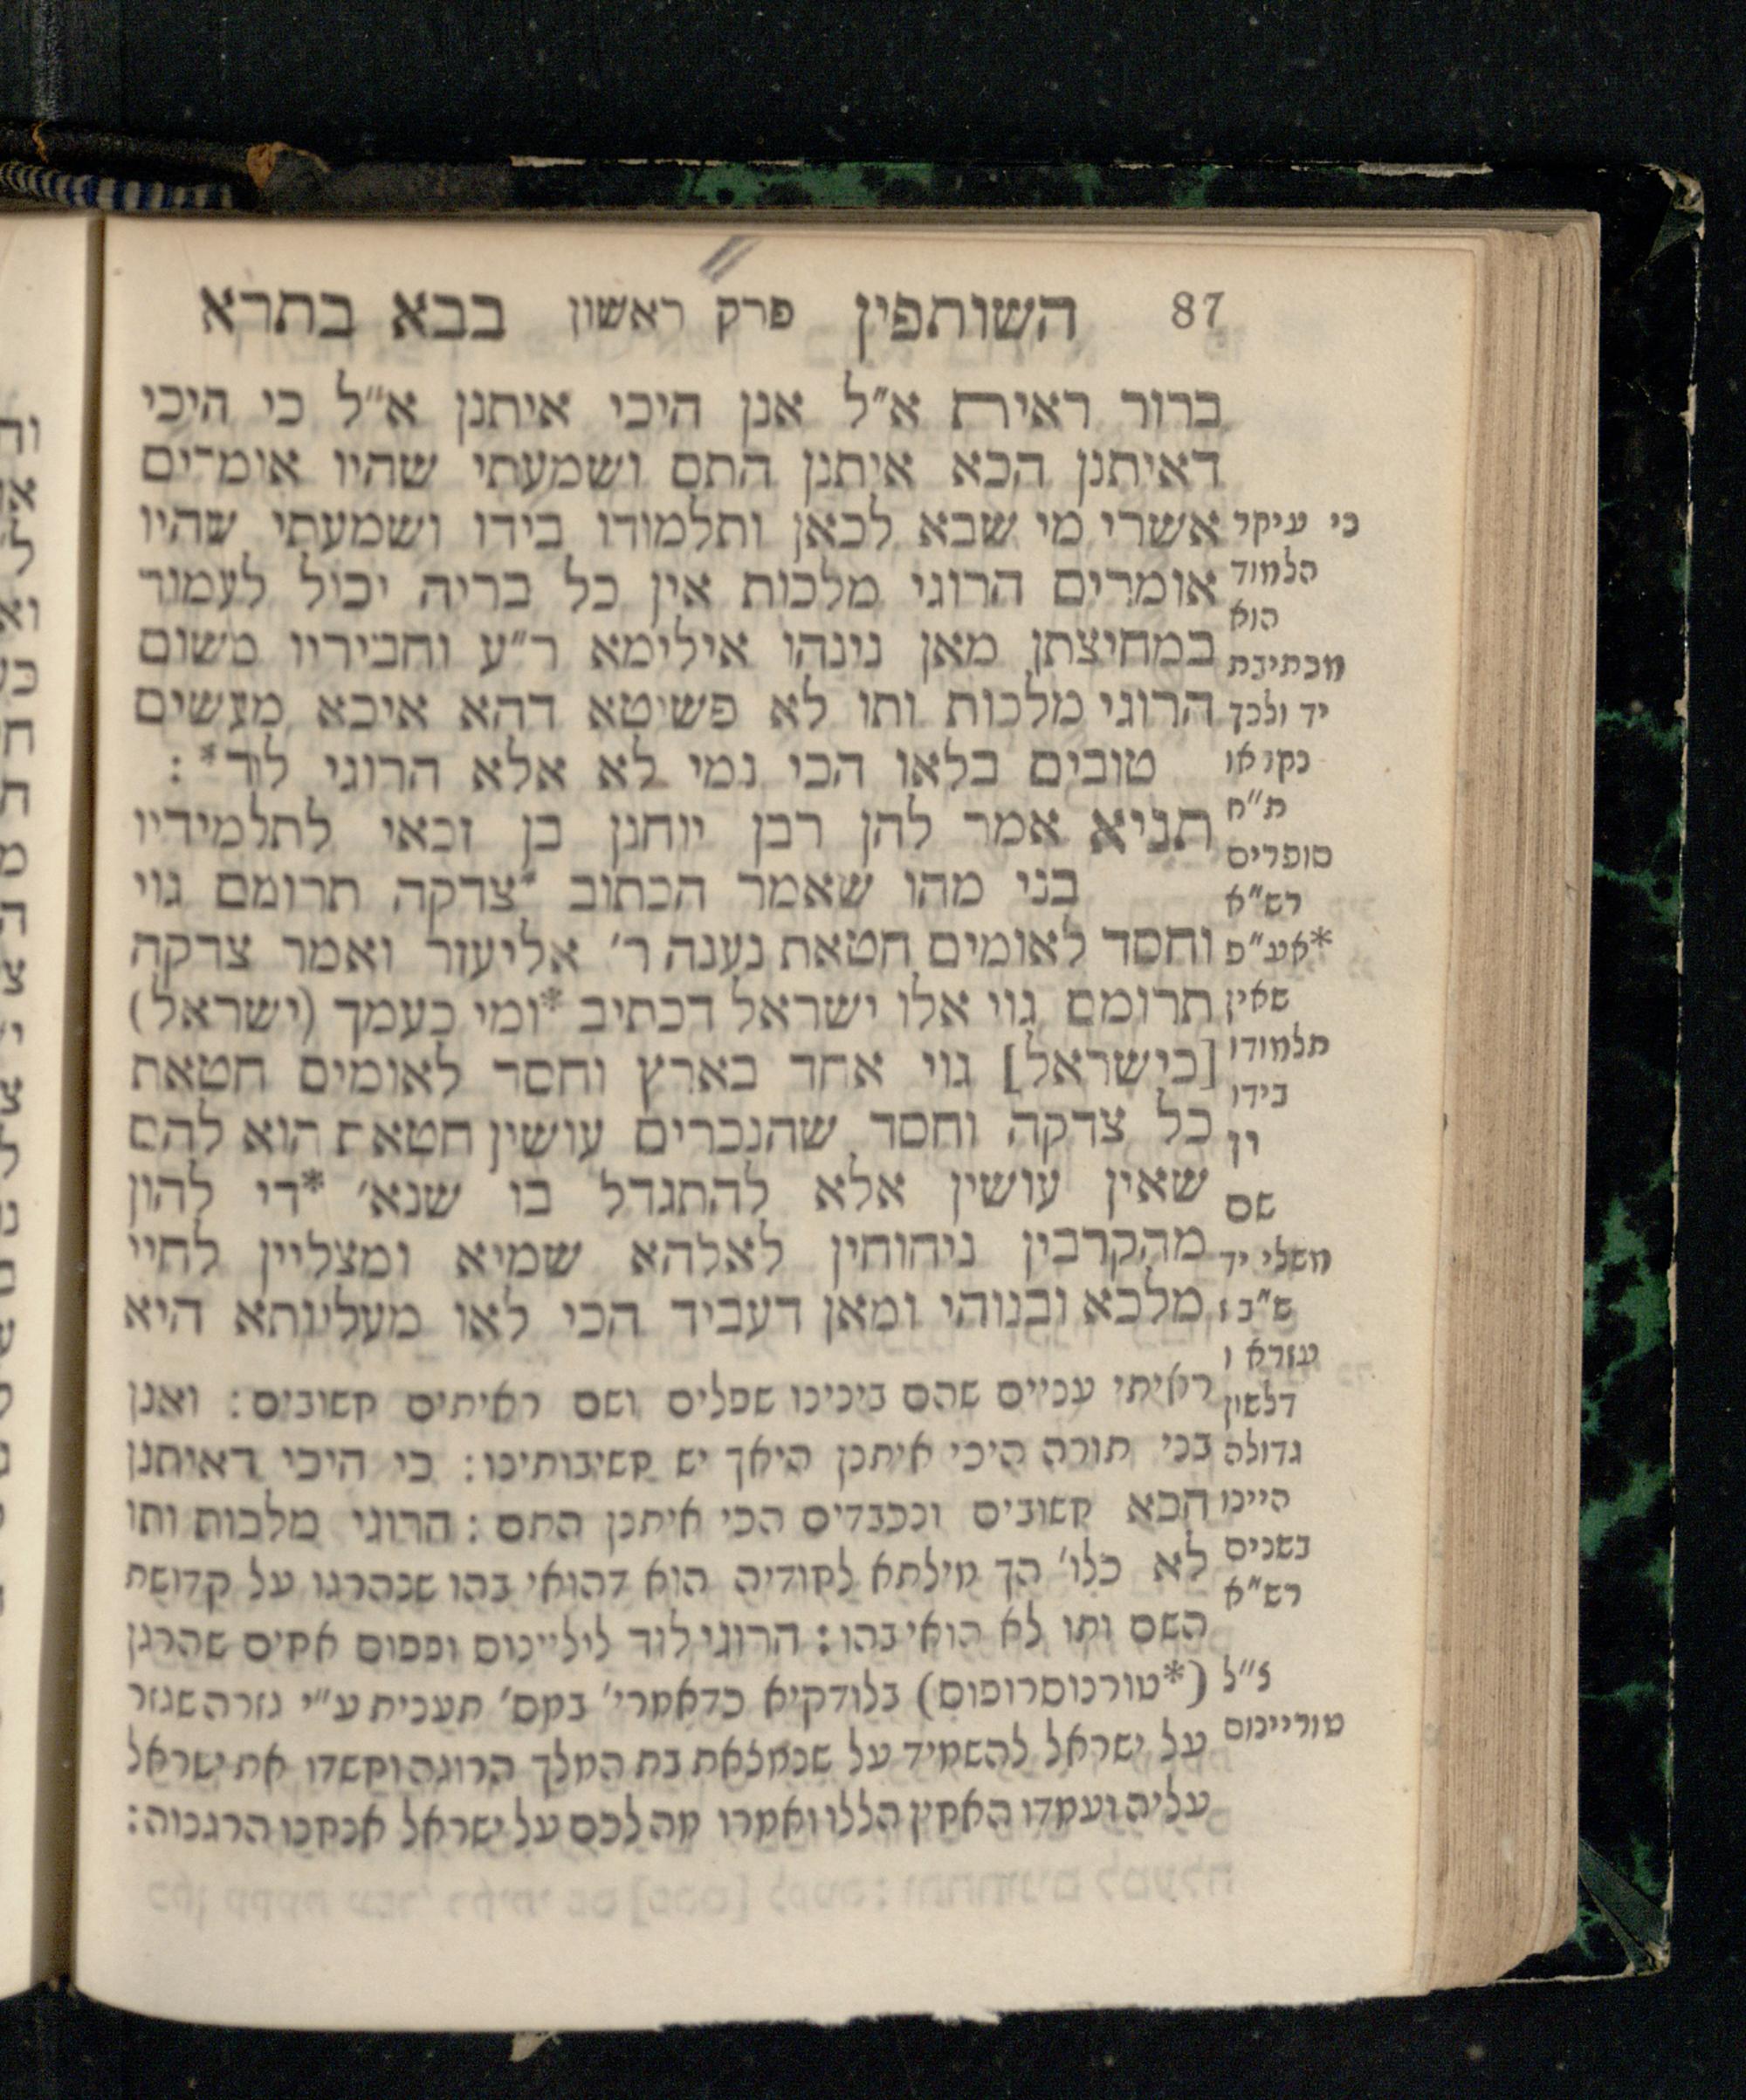 87 השותפין פרק ראשון בבא בתרא
ברור ראית א"ל אנן היכי איתנן א"ל כי היכי
דאיתנן הכא איתנן התם ושמעתי שהיו אומרים
אשרי מי שבא לכאן ותלמודו בידו ושמעתי שהיו
אומרים הרוגי מלכות אין כל בריה יכול לעמוד
במחיצתן מאן נינהו אילימא ר"ע וחביריו משום
הרוגי מלכות ותו לא פשיטא דהא איכא מעשים
טובים בלאו הכי נמי לא אלא הרוגי לוד* :
תניא אמר להן רבן יוחנן בן זכאי לתלמידיו
בני מהו שאמר הכתוב *צדקה תרומם גוי
וחסד לאומים חטאת נענה ר' אליעזר ואמר צדקה
תרומם גוי אלו ישראל דכתיב *ומי כעמך (ישראל)
[כישראל] גוי אחד בארץ וחסד לאומים חטאת
כל צדקה וחסד שהנכרים עושין חטאת הוא להם
שאין עושין אלא להתגדל בו שנא' *די להון
מהקרבין ניחוחין לאלהא שמיא ומצליין לחיי
מלכא ובנוהי ומאן דעביד הכי לאו מעליותא היא
ראיתי עניים שהם בינינו שפלים ושם ראיתים חשובים : ואנן
בני תורה היכי איתנן היאך יש חשיבותינו : כי היכי דאיתנן
הכא חשובים ונכבדים הכי איתנן התם : הרוגי מלכות ותו
לא כלו' הך מילתא לחודיה הוא דהואי בהו שנהרגו על קדושת
השם ותו לא הואי בהו : הרוגי לוד לילייינוס ופפוס אחים שהרגן
(*טורנוסרופוס) בלודקיא כדאמרי' במס' תענית ע"י גזרה שגזר
על ישראל להשמיד על שנמצאת בת המלך הרוגה וחשדו את ישראל
עליה ועמדו האחין הללו ואמרו מה לכם על ישראל אנחנו הרגנוה :
כי עיקר
הלמוד
הוא
מכתיבת
יד ולכך
נקראו
ת"ח
סופרים
רש"א
*אע"פ
שאין
תלמודו
בידו
ין
שם
משלי יד
ש"ב ז
עזרא ו
דלשון
גדולה
היינו
בשנים
רש"א
ז"ל
טוריינוס